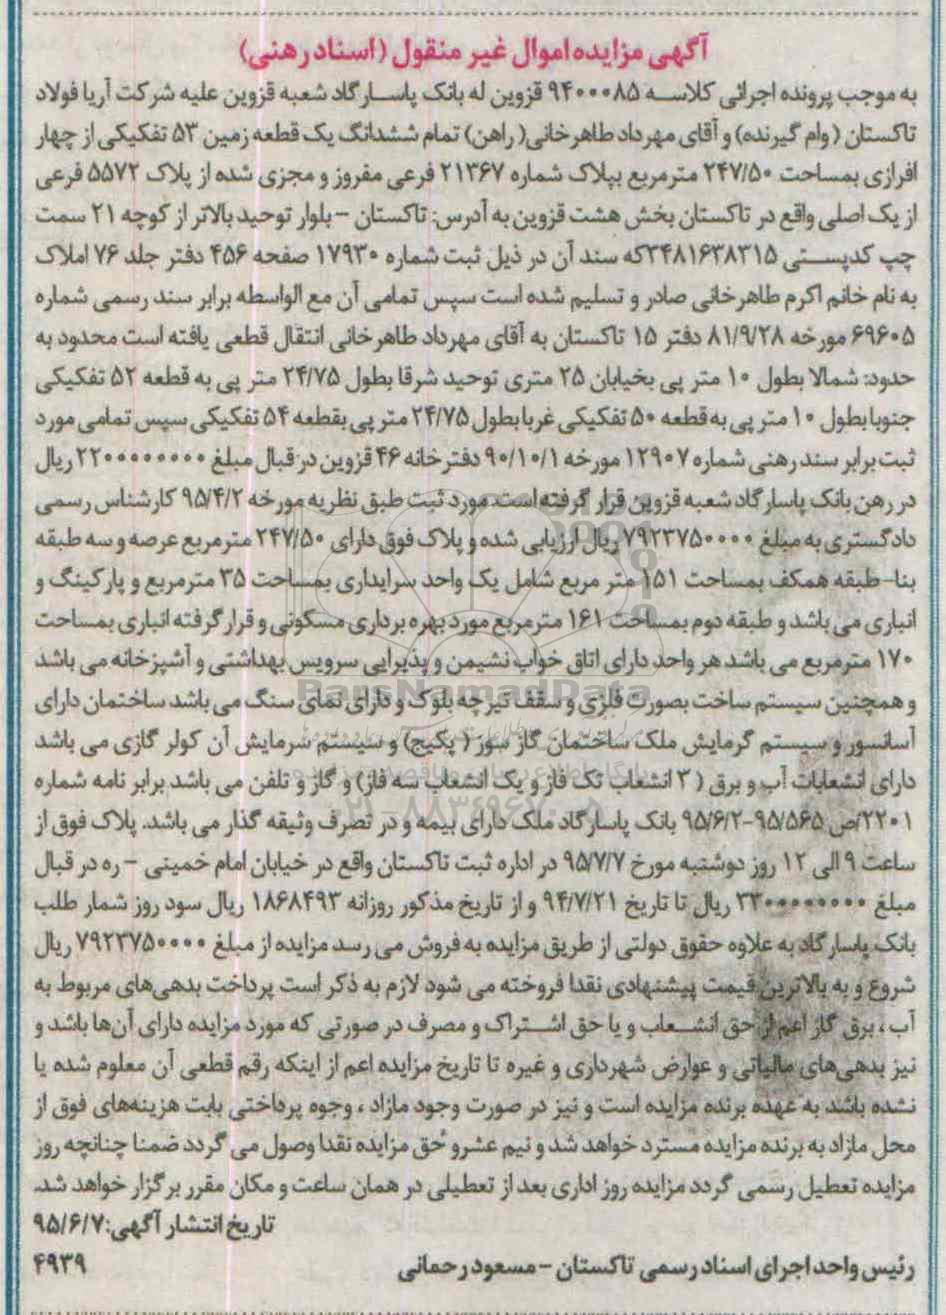 آگهی مزایده اموال غیر منقول (اسناد رهنی)
به موجب پرونده اجرائی کلاسه ۹۴۰۰۰۸۵ قزوین له بانک پاسارگاد شعبه قزوین علیه شرکت آریا فولاد
تاکستان (وام گیرنده) و آقای مهرداد طاهرخانی (راهن) تمام ششدانگ یک قطعه زمین ۵۳ تفکیکی از چهار
افرازی بمساحت ۲۴۷/۵۰ مترمربع بپلاک شماره ۲۱۳۶۷ فرعی مفروز و مجزی شده از پلاک ۵۵۷۲ فرعی
از یک اصلی واقع در تاکستان بخش هشت قزوین به آدرس: تاکستان - بلوار توحید بالاتر از کوچه ۲۱ سمت
چپ کدپستی ۳۴۸۱۶۳۸۳۱۵که سند آن در ذیل ثبت شماره ۱۷۹۳۰ صفحه ۴۵۶ دفتر جلد ۷۶ املاک
به نام خانم اکرم طاهرخانی صادر و تسلیم شده است سپس تمامی آن مع الواسطه برابر سند رسمی شماره
۶۹۶۰۵ مورخه ۸۱/۹/۲۸ دفتر ۱۵ تاکستان به آقای مهرداد طاهرخانی انتقال قطعی یافته است محدود به
حدود: شمالا بطول ۱۰ متر پی بخیابان ۲۵ متری توحید شرقا بطول ۲۴/۷۵ متر پی به قطعه ۵۲ تفکیکی
جنوبا بطول ۱۰ متر پی به قطعه ۵۰ تفکیکی غربا بطول ۲۴/۷۵ متر پی بقطعه ۵۴ تفکیکی سپس تمامی مورد
ثبت برابر سند رهنی شماره ۱۲۹۰۷ مورخه ۹۰/۱۰/۱ دفترخانه ۴۶ قزوین در قبال مبلغ ۲۲۰۰۰۰۰۰۰۰ ریال
در رهن بانک پاسارگاد شعبه قزوین قرار گرفته است. مورد ثبت طبق نظریه مورخه ۹۵/۴/۲ کارشناس رسمی
دادگستری به مبلغ ۷۹۲۳۷۵۰۰۰۰ ریال ارزیابی شده و پلاک فوق دارای ۲۴۷/۵۰ مترمربع عرصه و سه طبقه
بنا- طبقه همکف بمساحت ۱۵۱ متر مربع شامل یک واحد سرایداری بمساحت ۳۵ مترمربع و پارکینگ و
انباری می باشد و طبقه دوم بمساحت ۱۶۱ مترمربع مورد بهره برداری مسکونی و قرار گرفته انباری بمساحت
۱۷۰ مترمربع می باشد هر واحد دارای اتاق خواب نشیمن و پذیرایی سرویس بهداشتی و آشپزخانه می باشد
ParsNamadData
و همچنین سیستم ساخت بصورت فلزی و سقف تیرچه بلوک و دارای نمای سنگ می باشد ساختمان دارای
آسانسور و سیستم گرمایش ملک ساختمان گاز سوز (پکیج) و سیستم سرمایش آن کولر گازی می باشد
دارای انشعابات آب و برق (۳ انشعاب تک فاز و یک انشعاب سه فاز) و گاز و تلفن می باشد برابر نامه شماره
۰۲۱-۸۸۳۴۹۶۷۰-۵
۲۲۰۱/ص ۹۵/۵۶۵-۹۵/۶/۲ بانک پاسارگاد ملک دارای بیمه و در تصرف وثیقه گذار می باشد. پلاک فوق از
ساعت ۹ الی ۱۲ روز دوشنبه مورخ ۹۵/۷/۷ در اداره ثبت تاکستان واقع در خیابان امام خمینی - ره در قبال
مبلغ ۳۳۰۰۰۰۰۰۰۰ ریال تا تاریخ ۹۴/۷/۲۱ و از تاریخ مذکور روزانه ۱۸۶۸۴۹۳ ریال سود روز شمار طلب
بانک پاسارگاد به علاوه حقوق دولتی از طریق مزایده به فروش می رسد مزایده از مبلغ ۷۹۲۳۷۵۰۰۰۰ ریال
شروع و به بالاترین قیمت پیشنهادی نقدا فروخته می شود لازم به ذکر است پرداخت بدهی های مربوط به
آب، برق گاز اعم از حق انشعاب و یا حق اشتراک و مصرف در صورتی که مورد مزایده دارای آن ها باشد و
نیز بدهی های مالیاتی و عوارض شهرداری و غیره تا تاریخ مزایده اعم از اینکه رقم قطعی آن معلوم شده یا
نشده باشد به عهده برنده مزایده است و نیز در صورت وجود مازاد، وجوه پرداختی بابت هزینه های فوق از
محل مازاد به برنده مزایده مسترد خواهد شد و نیم عشر و حق مزایده نقدا وصول می گردد ضمنا چنانچه روز
مزایده تعطیل رسمی گردد مزایده روز اداری بعد از تعطیلی در همان ساعت و مکان مقرر برگزار خواهد شد.
تاریخ انتشار آگهی: ۹۵/۶/۷
رئیس واحد اجرای اسناد رسمی تاکستان - مسعود رحمانی
۴۹۳۹